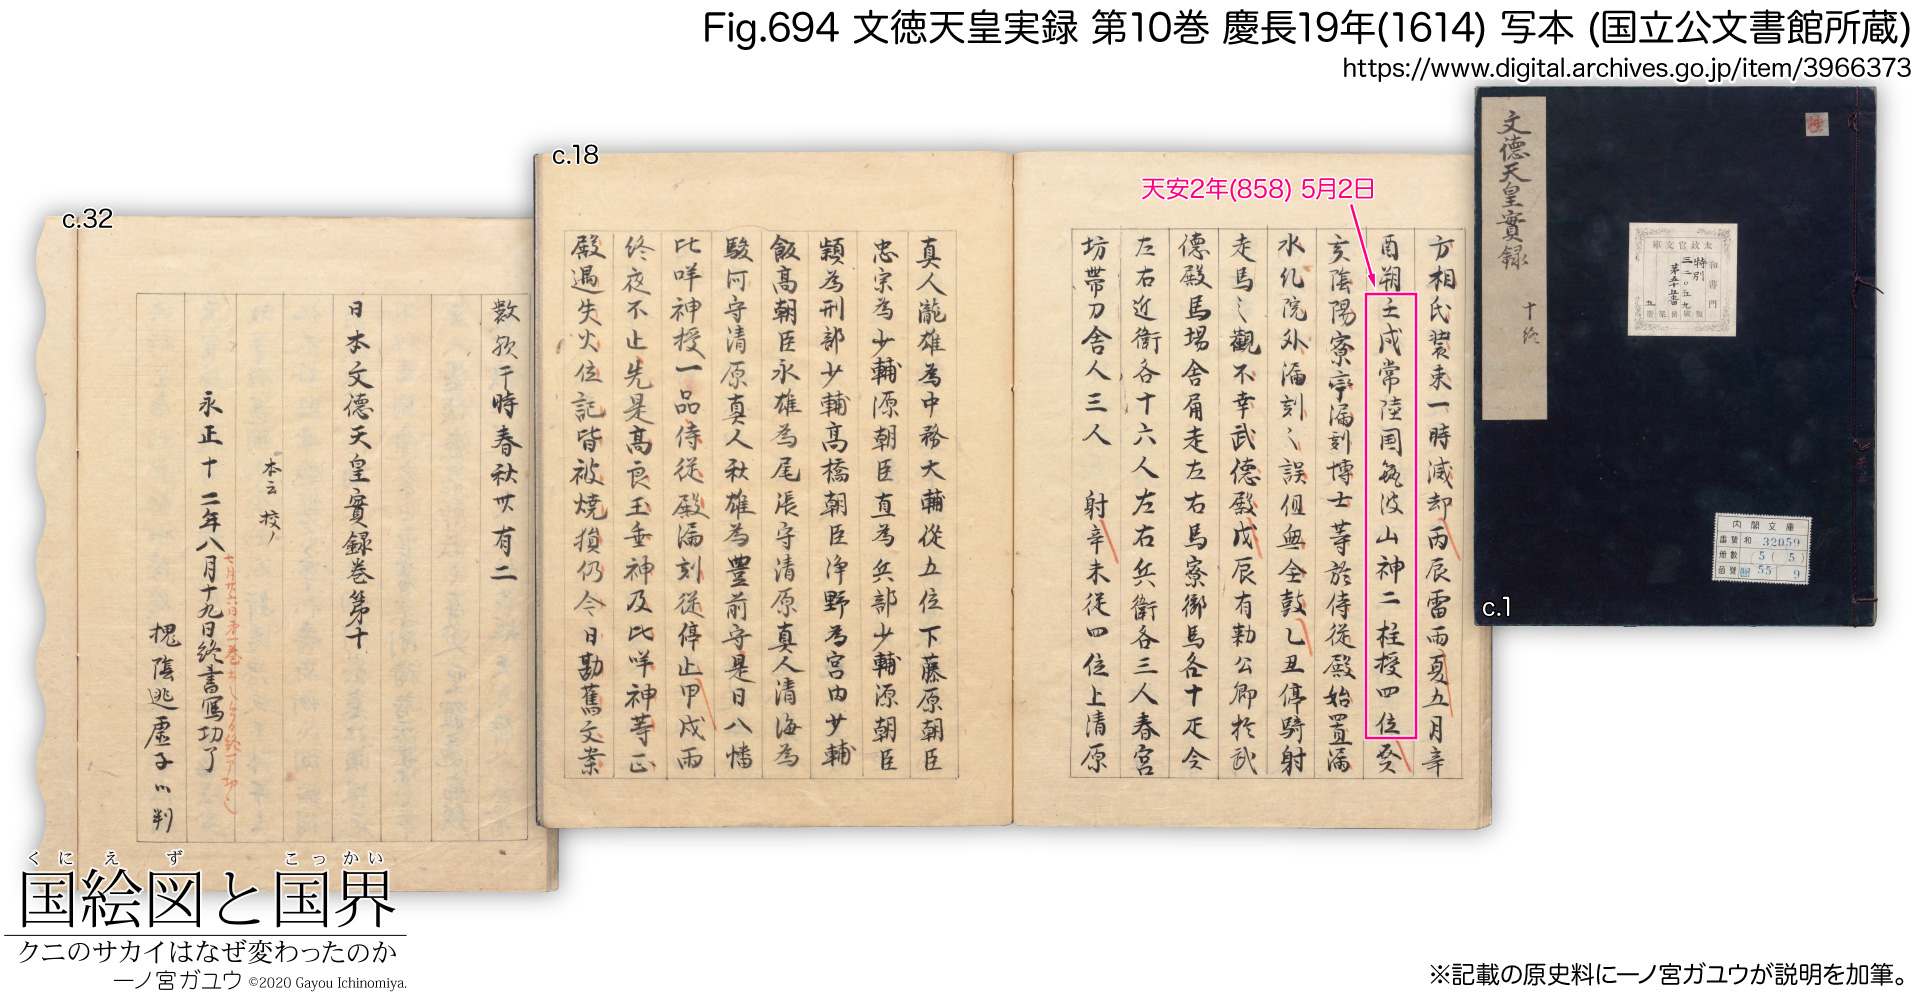 Fig.694 文徳天皇実録 第10巻 慶長19年(1614) 写本 (国立公文書館所蔵)
https://www.digital.archives.go.jp/item/3966373
c.1
文德天皇實録
十終
太政官文庫
和書門
特別
三二〇五九
内閣文庫
番號 和 32059
冊數 5 ( 5 )
函號 55 9
c.18
天安2年(858) 5月2日
方相氏装束一時減却丙辰雷雨夏五月辛
酉朔壬戌常陸国筑波山神二柱授四位癸
亥陰陽寮亭漏刻博士等於侍従殿始置漏
水化院外漏刻〻誤但無全鼓乙丑停騎射
走馬〻觀不幸武德殿戊辰有勅公卿於武
德殿馬場舎角走左右馬寮御馬各十疋令
左右近衛各十六人左右兵衛各三人春宮
坊帯刀舎人三人 射辛未従四位上清原
真人瀧雄為中務大輔従五位下藤原朝臣
忠宗為少輔源朝臣直為兵部少輔源朝臣
頴為刑部少輔髙橋朝臣浄野為宮内少輔
飯髙朝臣永雄為尾張守清原真人清海為
駿河守清原真人秋雄為豊前守是日八幡
比咩神授一品侍従殿漏刻従停止甲戌雨
終夜不止先是髙良玉垂神及比咩神等正
殿遇失火位記皆被焼損仍令日勘舊文案
c.32
數於干時春秋卅有二
日本文德天皇實録巻第十
本云 校ノ
永正十二年八月十九日終書写功了
槐陰逃虚子 判
くにえず こっかい
国絵図と国界
クニのサカイはなぜ変わったのか
一ノ宮ガユウ ©2020 Gayou Ichinomiya.
※記載の原史料に一ノ宮ガユウが説明を加筆。